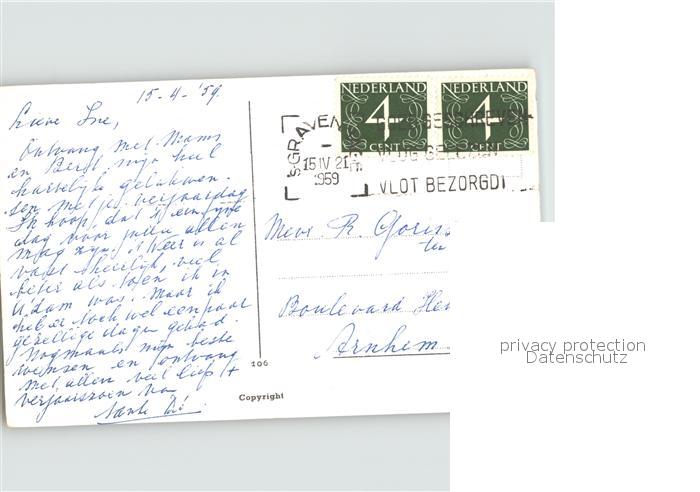 15-4-'59.
Lieve Ine,
Ontvang met Mams
en Beral mijn heel
hartelijk gelukwen-
sen met je verjaardag
Ik hoop, dat 't een fijne
dag voor jullie allen
mag zijn. 't Weer is al
vast heerlijk, veel
beter als toen ik in
A'dam was. Maar ik
heb er toch wel een paar
gezellige dagen gehad.
Nogmaals mijn beste
wensen en ontvang
met allen veel liefs +
verjaarszoen van
Tante
NEDERLAND
4
CENT
NEDERLAND
4
CENT
'SGRAVEN
15 IV 21
1959
VLOT BEZORGD!
Mevr R.
Boulevard
Arnhem
106
Copyright
privacy protection
Datenschutz